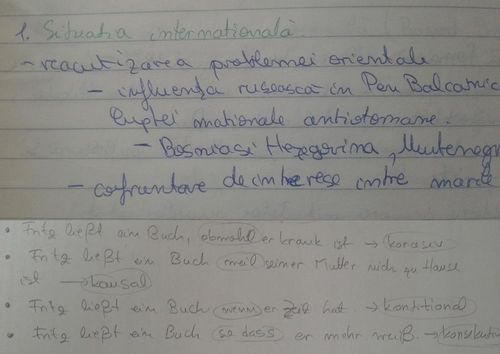 1. Situatia internatională.
- reacutizarea problemei orientale
- influența rusească în Pen Balcanic
luptei nationale antiotomane.
- Bosnia si Herzegovina, Muntenegr
- cofruntare de interese intre marile
• Fritz ließt ein Buch, obwohl er krank ist →
• Fritz ließt ein Buch weil seiner Mutter nich zu Hause
ist → kausal
• Fritz ließt ein Buch wenn er Zeit hat. → konditional
• Fritz ließt ein Buch so dass er mehr weiß. → konsekutiv